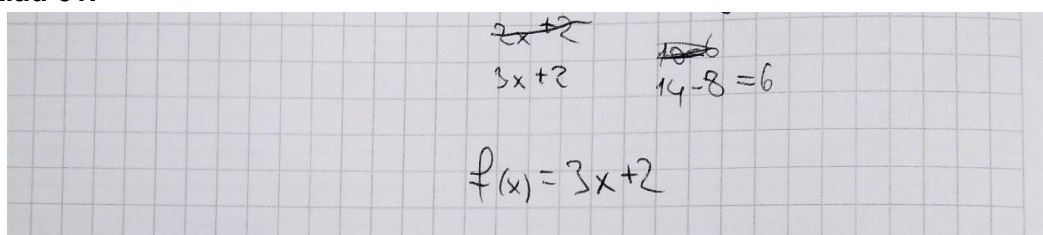 2x+2
10-6
3x+2
14-8=6
f(x)=3x+2